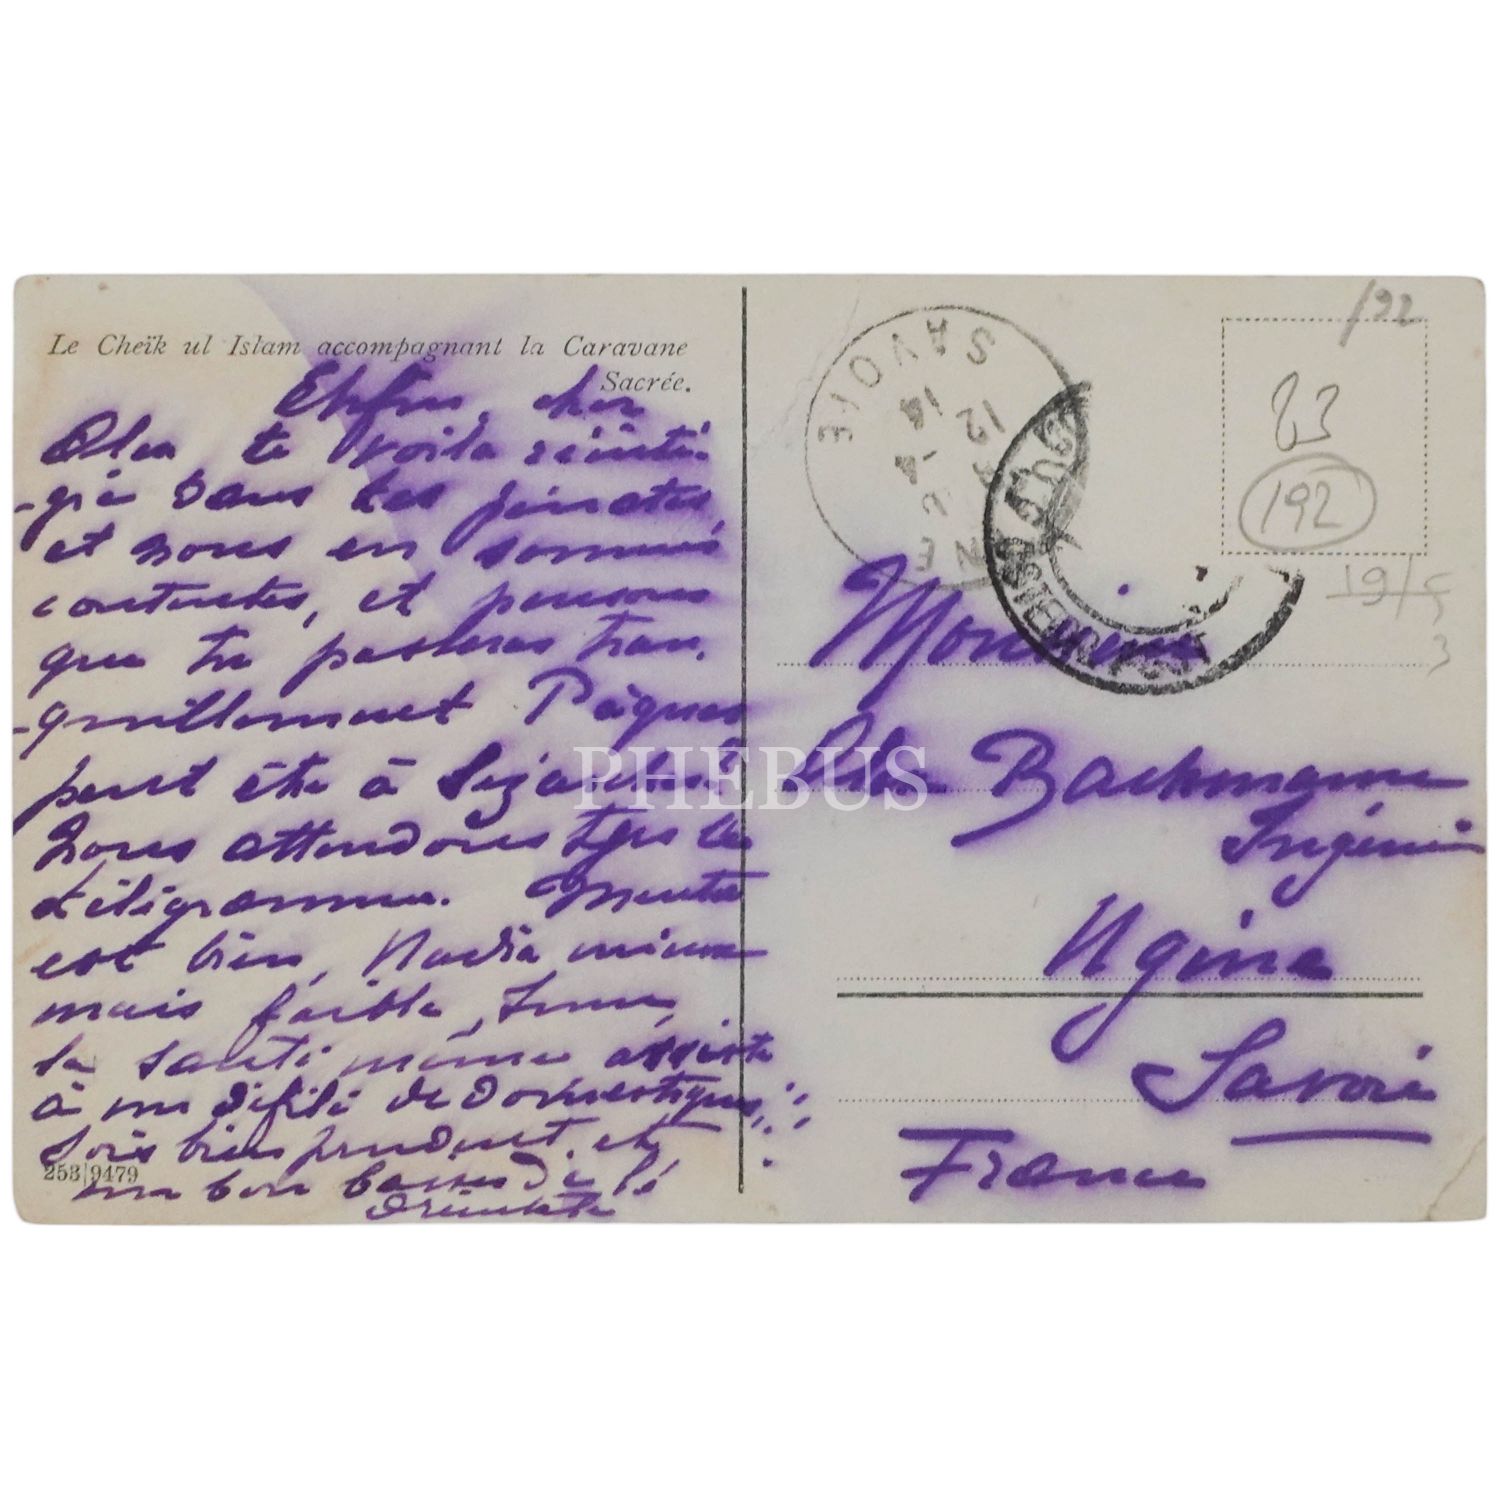 Le Cheïk ul Islam accompagnant la Caravane
Sacrée.
Enfin, cher
te voilà réinté-
-gré dans tes pénates,
et nous en sommes
contentes, et pensons
que tu passeras tran-
-quillement Pâques
peut être à
Nous attendons tjrs le
télégramme.
est bien, Nadia mieux
mais faible,
la santé même assiste
à un défilé de domestiques!!
Sois bien prudent et
un bon baiser de
253|9479
SAVOIE
12
14
192
83
192
19/5
3
Monsieur
Bachmann
Ingénieur
Ugine
Savoie
France
PHEBUS